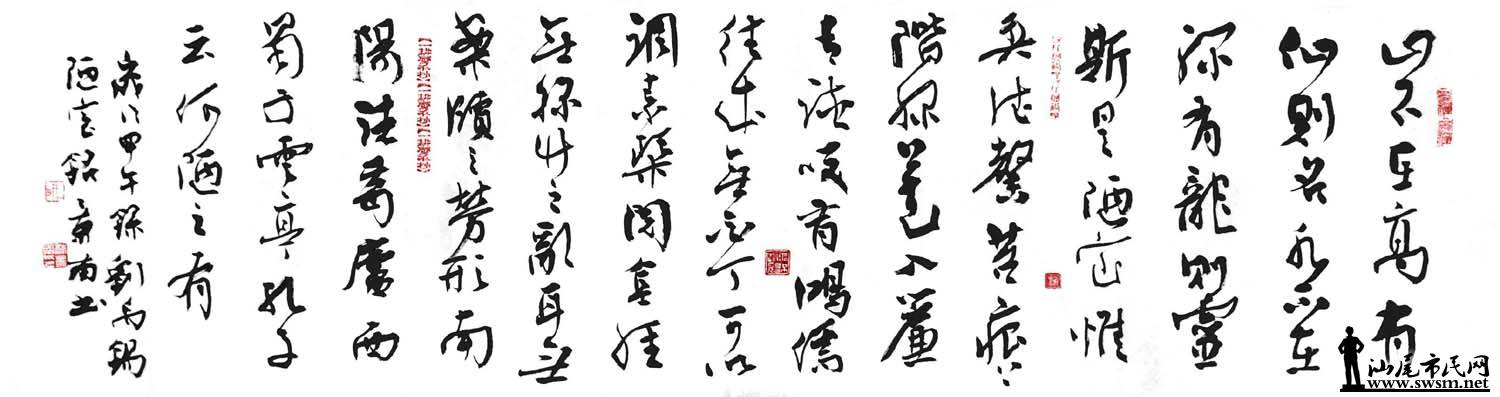 山不在高有
仙則名水不在
深有龍則靈
斯是陋室惟
吾德馨苔痕上
階綠草色入簾
青談笑有鴻儒
往來無白丁可以
調素琴閱金經
無絲竹之亂耳無
案牘之勞形南
陽諸葛廬西
蜀子雲亭孔子
云何陋之有
歲次甲午錄劉禹錫
陋室銘 南書
汕尾市民网
www.swsm.net